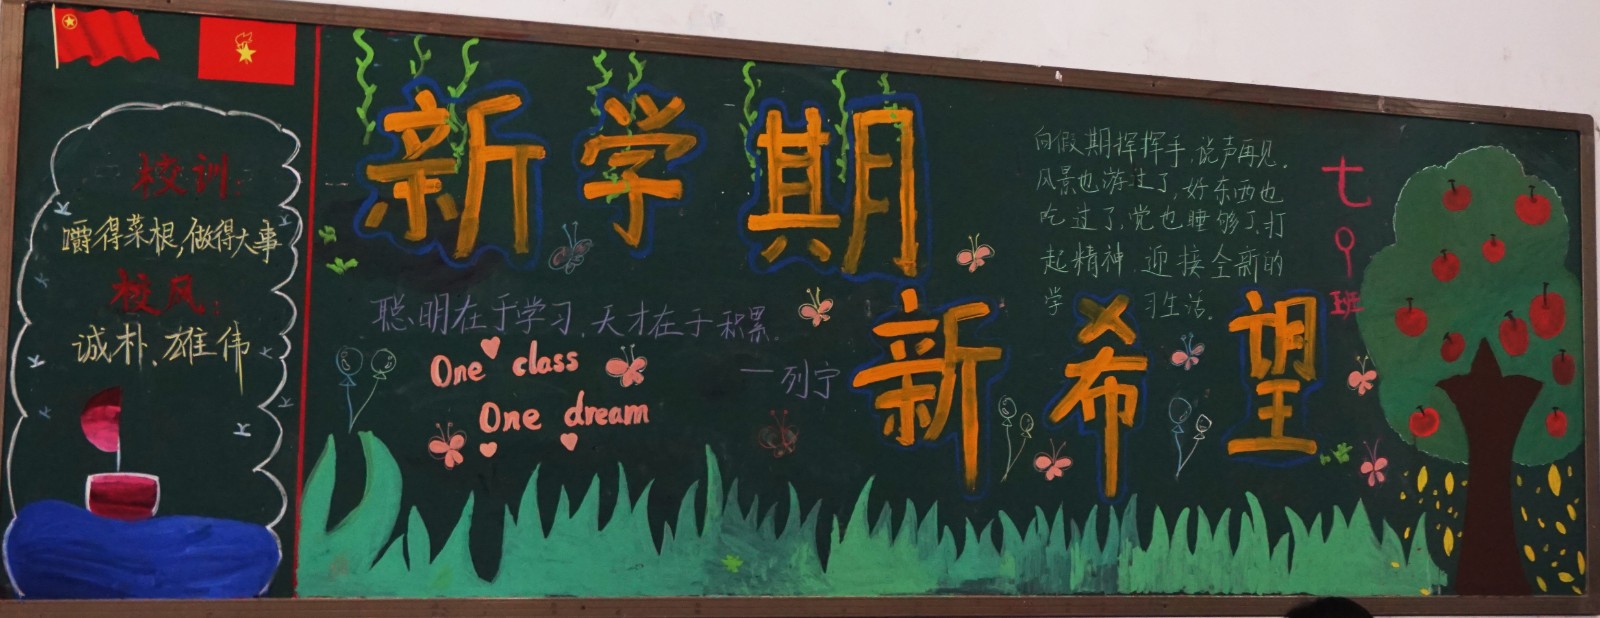 校训:
嚼得菜根,做得大事
校风:
诚朴、雄伟
新学期
新希望
聪明在于学习,天才在于积累.
一列宁
One class
One dream
向假期挥挥手,说声再见.
风景也游过了,好东西也
吃过了,觉也睡够了,打
起精神,迎接全新的
学 习生活。
七
班